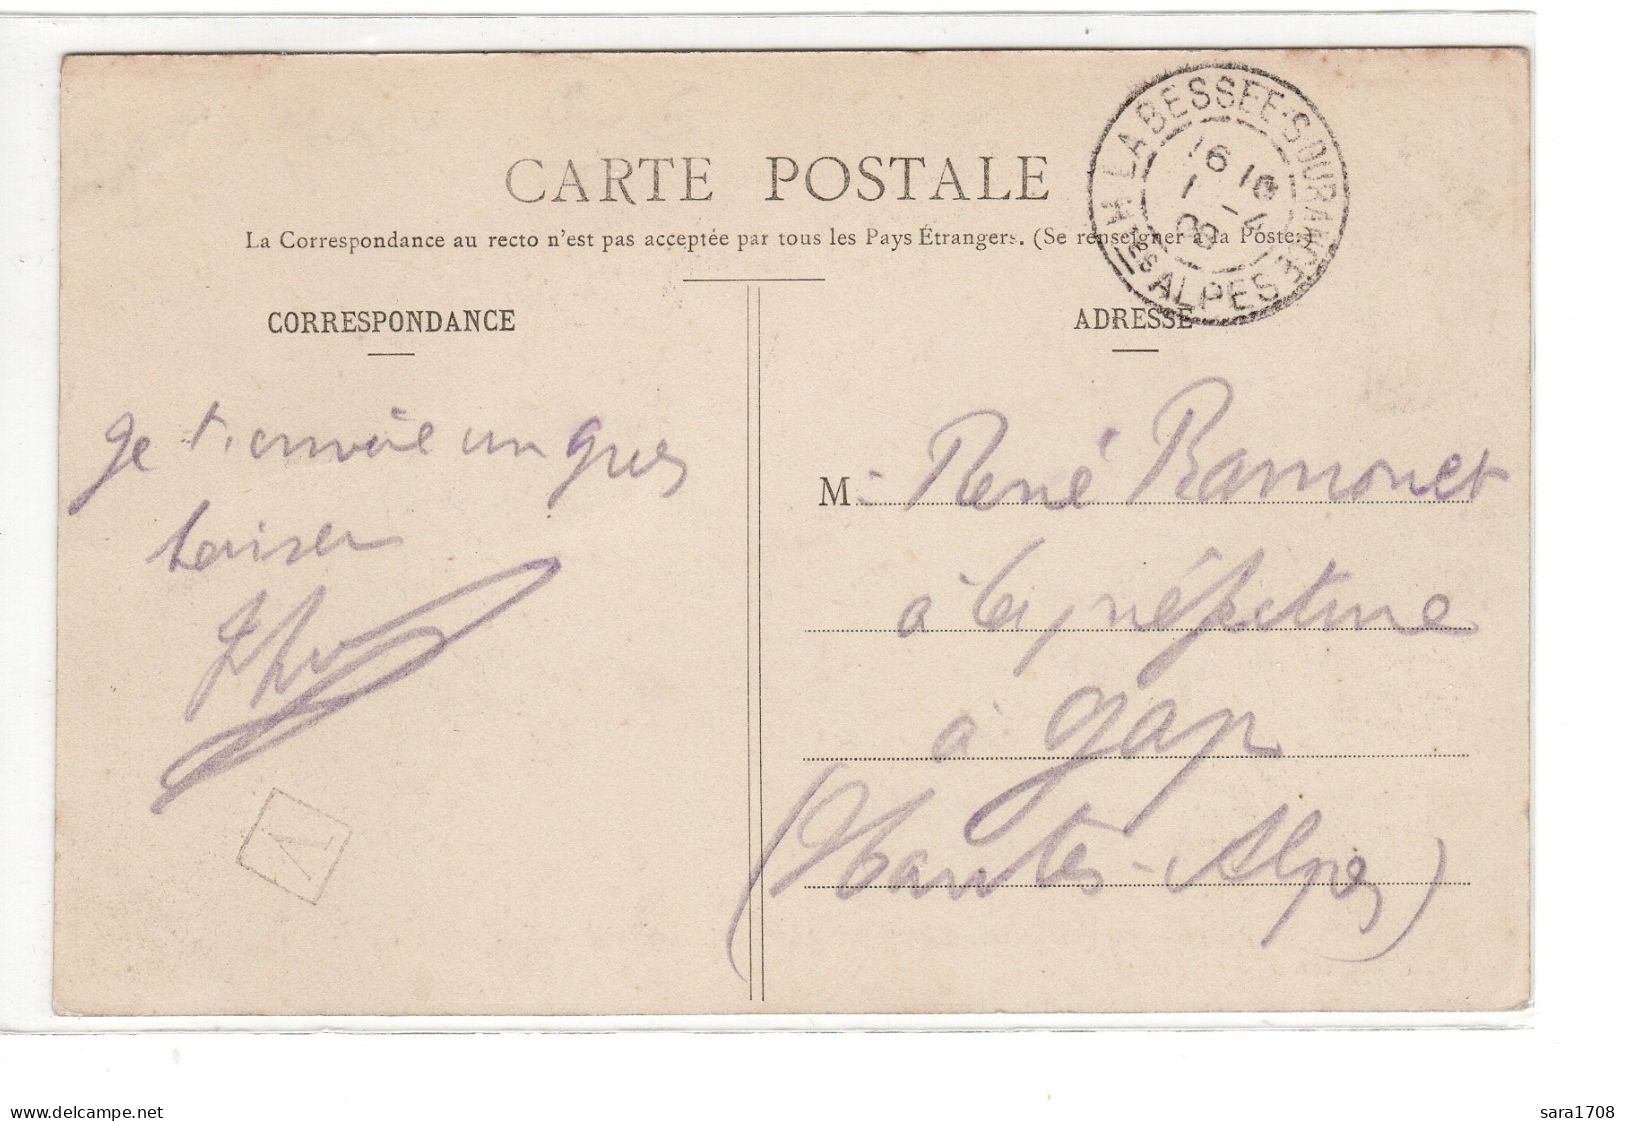 CARTE POSTALE
La Correspondance au recto n'est pas acceptée par tous les Pays Étrangers. (Se renseigner à la Poste.)
CORRESPONDANCE
Je t'envoie un gros
baiser
ADRESSE
M. René Ramonet
à la préfecture
à Gap
(Hautes-Alpes)
LA BESSEE-SUR-DURANCE
HTES ALPES
delcampe.net
sara1708